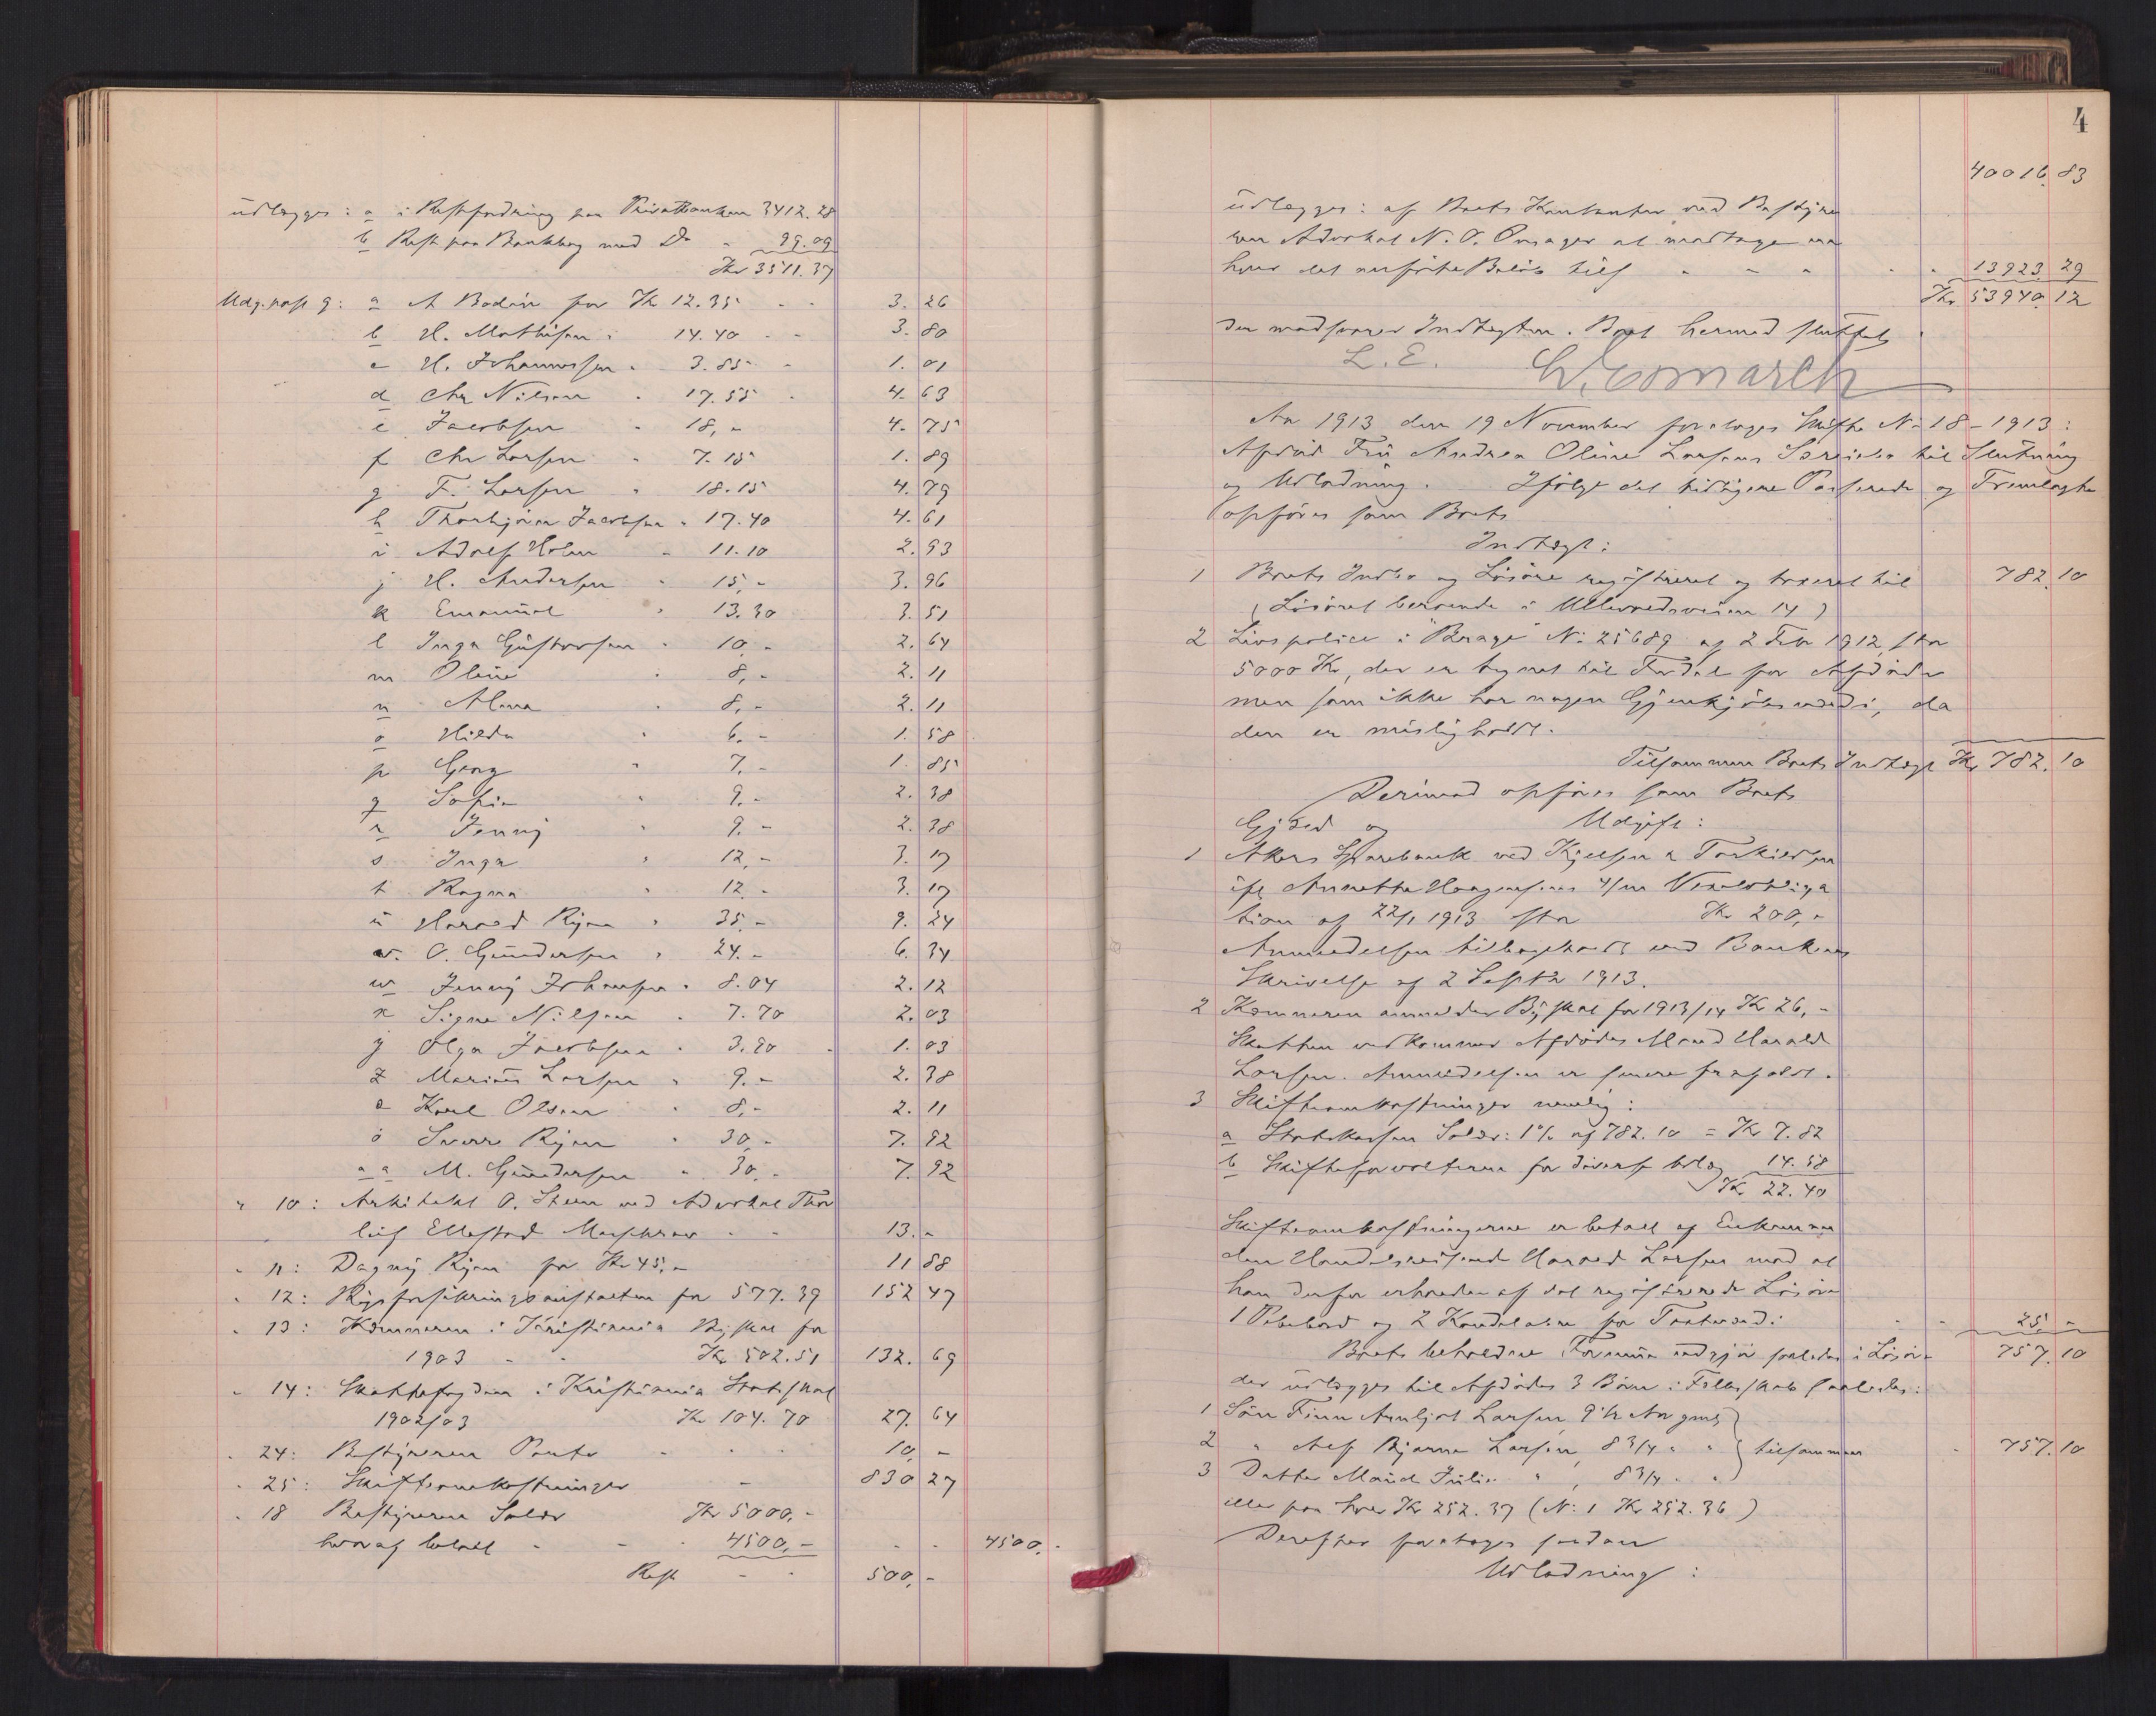 udlægges: a i Restfordring paa Privatbanken 3412.28
b Rest paa Bankbog med Do - 99.09
Kr 3511.37
Udg. post 9: a A Bodin for Kr 12.35 - - 3.26
b H. Mathisen " 14.40 - - 3.80
c H. Johannessen " 3.85 - 1.01
d Chr Nilsen " 17.55 - 4.63
e Jacobsen " 18,- 4.75
f Chr Larsen " 7.15 1.89
g F. Larsen " 18.15 4.79
h Thorbjørn Jacobsen " 17.40 4.61
i Adolf Holm " 11.10 2.93
j H. Andersen " 15,- 3.96
k Emanuel " 13.30 3.51
l Inga Gustavsen " 10,- 2.64
m Oline " 8,- 2.11
n Alma " 8,- 2.11
o Hilda " 6,- 1.58
p Georg " 7,- 1.85
q Sofie " 9,- 2.38
r Jenny " 9,- 2.38
s Inga " 12,- 3.17
t Ragna " 12,- 3.17
u Harald Ryan " 35,- 9.24
v. O. Gundersen " 24,- 6.34
w Jenny Johansen " 8.04 2.12
x Signe Nilsen " 7.70 2.03
y Olga Jacobsen " 3.90 1.03
z Marius Larsen " 9,- 2.38
æ Karl Olsen " 8,- 2.11
ö Sverre Ryan " 30,- 7.92
aa M. Gundersen " 30,- 7.92
" 10: Arkitekt O. Steen ved Advokat Thor
leif Ellestad - - 13.-
" 11: Dagny Ryan for Kr 45,- 11 88
" 12: Rigsforsikringsanstalten for 577.39 152 47
" 13: Kæmneren i Kristiania Byskat for
1903 - - Kr 502.51 132.69
" 14: Skattefogden i Kristiania Statsskat
1902/03 Kr 104.70 27.64
" 24: Bestyreren Porto - - - 10,-
" 25: Skifteomkostninger - 830 27
" 18 Bestyrerens Salær Kr 5000,-
hvoraf betalt - - - 4500,- - - 4500,-
Rest - - 500,-
4
40016.83
udlægges: af Boets Kontanter ved Bestyre
ren Advokat N. O. Onsager at modtage
hvor det anførte Beløb tilf - - - - - 13923.29
Kr 53940.12
der modsvarer Indtægten. Boet hermed sluttet.
L. E.
Aar 1913 den 19 November foretoges Skifte No 18 - 1913:
Afdøde Fru Andrea Oline Larsens Særeiebo til Slutning
og Udlodning. Ifølge det tidligere Passerede og Fremlagte
opføres som Boets
Indtægt:
1 Boets Indbo og Løsøre registreret og taxeret til 782.10
(Løsøret beroende i Ullevoldsveien 14)
2 Livspolice i "Brage" No 25689 af 2 Febr 1912, stor
5000 Kr, der er tegnet til Fordel for Afdøde
men som ikke har nogen Gjenkjøbsværdi, da
den er misligholdt.
Tilsammen Boets Indtægt Kr 782.10
Derimod opføres som Boets
Gjæld og Udgift:
1 Akers Sparebank ved Kjelsen & Torkildsen
ifl Annette Haagensens 4/m Vexelobliga
tion af 22/1 1913 stor Kr 200,-
Anmeldelsen tilbagekaldt ved Bankens
Skrivelse af 2 Septbr 1913.
2 Kæmneren anmelder Byskat for 1913/14 Kr 26,-
Skatten vedkommer Afdødes Mand Harald
Larsen. Anmeldelsen er senere frafaldt.
3 Skifteomkostninger nemlig:
a Statskassen Salær: 1% af 782.10 = Kr 7.82
b Skifteforvalteren for diverse bilag 14.58
Kr 22.40
Skifteomkostningerne er betalt af Enkeman
den Handelsreisende Harald Larsen mod at
han derfor erholder af det registrerede Løsøre
1 Pidebord og 2 for Taxtværdi: - - 25,-
Boets beholdne Formue udgjør saaledes i Løsøre 757.10
der udlægges til Afdødes 3 Børn i Fællesskab saaledes:
1 Søn Finn Arnljot Larsen, 9 1/2 Aar gml
2 " Alf Bjarne Larsen, 8 3/4 " " } tilsammen - 757.10
3 Datter Maud Julie " , 8 3/4 " "
eller paa hver Kr 252.37 (No 1 Kr 252.36)
Derefter foretoges saadan
Udlodning: